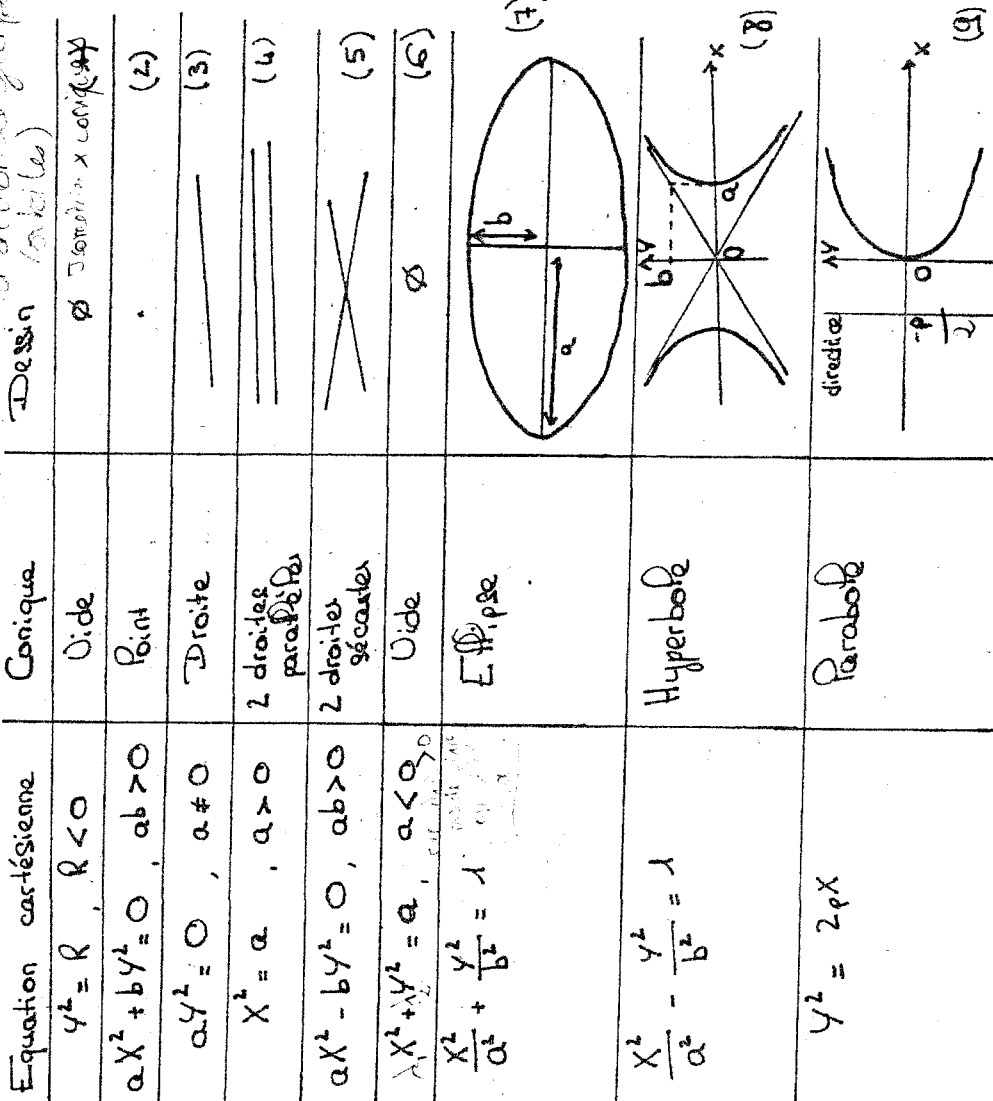 Equation cartésienne Conique Dessin (stables)
y² = k , k < 0 Vide ∅ (1)
aX² + bY² = 0 , ab > 0 Point . (2)
aY² = 0 , a ≠ 0 Droite (3)
X² = a , a > 0 2 droites parallèles (4)
aX² - bY² = 0 , ab > 0 2 droites sécantes (5)
λ₁X² + λ₂Y² = a , a < 0 Vide ∅ (6)
X²/a² + Y²/b² = 1 Ellipse a b (7)
X²/a² - Y²/b² = 1 Hyperbole b Y O a X (8)
Y² = 2pX Parabole directice -p/2 Y O X (9)